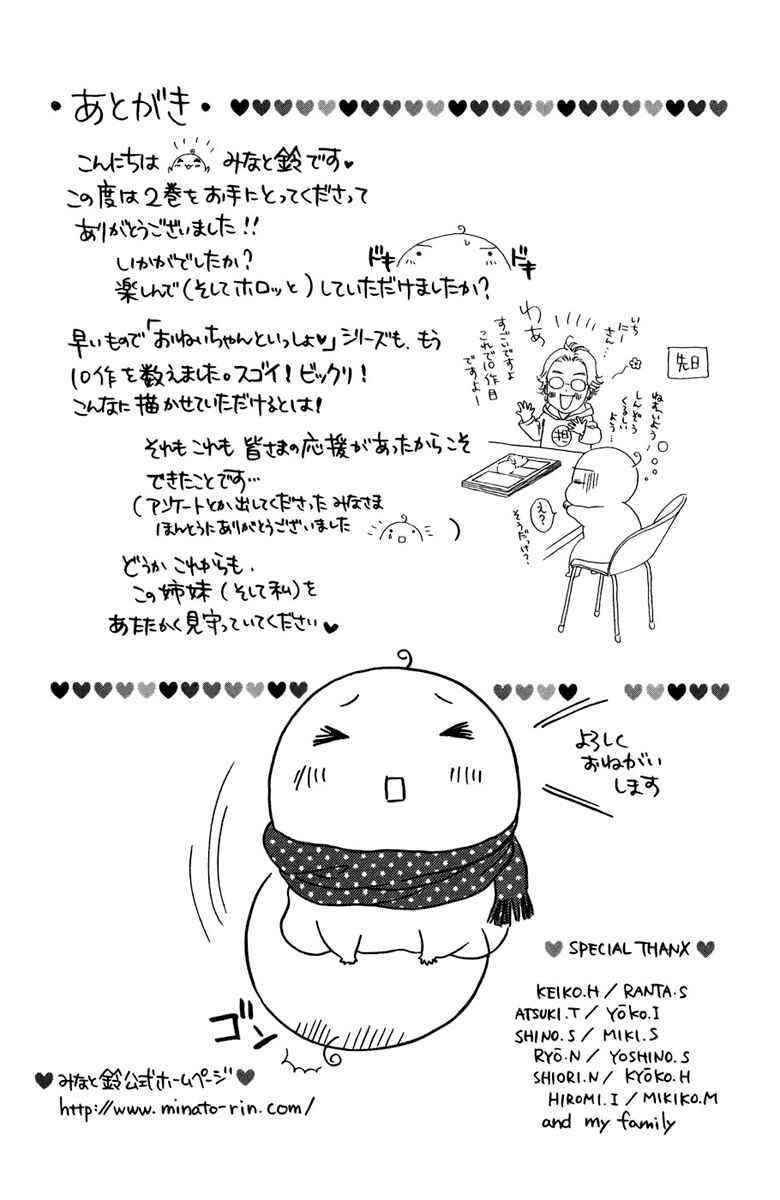 ・あとがき・
こんにちは みなと鈴です♥
この度は2巻をお手にとってくださって
ありがとうございました!!
いかがでしたか?
楽しんで(そしてホロッと)していただけましたか?
ドキ
ドキ
早いもので「おねいちゃんといっしょ♥」シリーズも、もう
10作を数えました。スゴイ!ビックリ!
こんなに描かせていただけるとは!
それもこれも 皆さまの応援があったからこそ
できたことです…
(アンケートとか出してくださったみなさま
ほんとうにありがとうございました )
どうか これからも、
この姉妹(そして私)を
あたたかく見守っていてください♥
先日
いち
にー
さん…
わぁ
すごいですよ
これで10作目
ですよー
ねれいよう…
しんぞう
くるしい
よう…
え?
そうだっけ?
よろしく
おねがい
します
ゴン
♥ SPECIAL THANX ♥
KEIKO.H / RANTA.S
ATSUKI.T / YŌKO.I
SHINO.S / MIKI.S
RYŌ.N / YOSHINO.S
SHIORI.N / KYŌKO.H
HIROMI.I / MIKIKO.M
and my family
♥ みなと鈴公式ホームページ ♥
http://www.minato-rin.com/